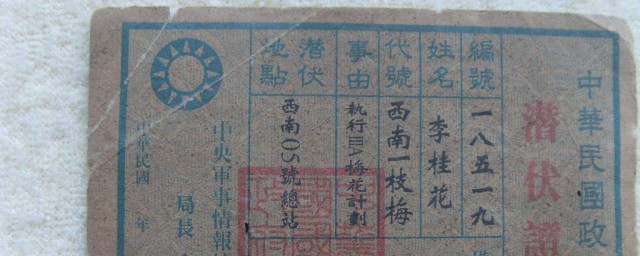 中華民國政
潛伏證
編號 一八五一九
姓名 李桂花
代號 西南一枝梅
事由 執行IIIA梅花計劃
潛伏地點 西南05號總站
中央軍事情報
局長
中華民國 年